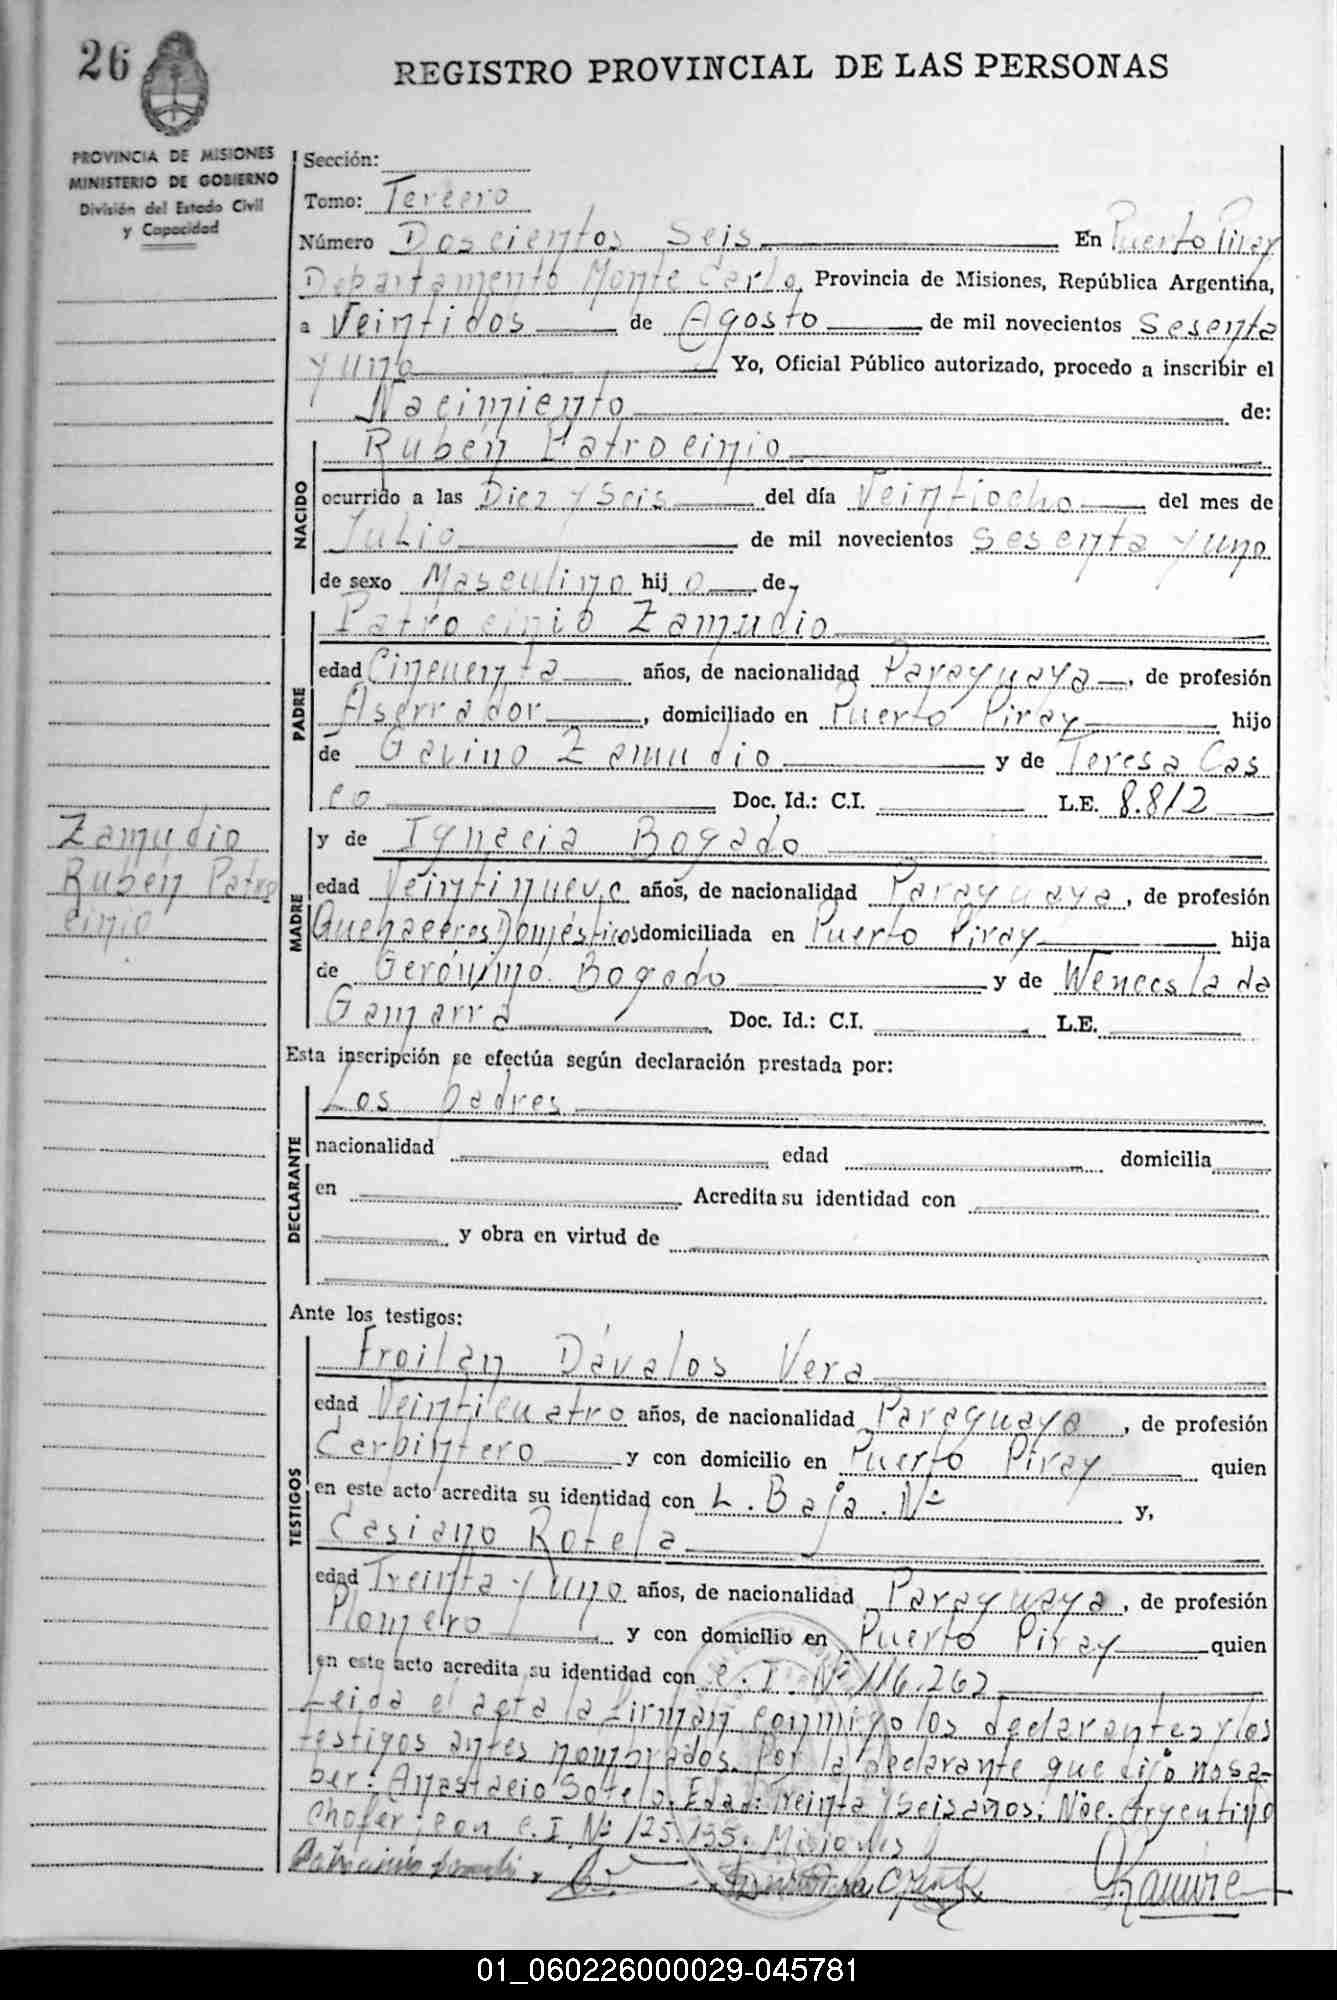 26
REGISTRO PROVINCIAL DE LAS PERSONAS
PROVINCIA DE MISIONES
MINISTERIO DE GOBIERNO
División del Estado Civil
y Capacidad
Sección:
Tomo: Tercero
Número Doscientos Seis En Puerto Piray
Departamento Monte Carlo, Provincia de Misiones, República Argentina,
a Veintidos de Agosto de mil novecientos Sesenta
y uno Yo, Oficial Público autorizado, procedo a inscribir el
Nacimiento de:
NACIDO
Rubén Patrocinio
ocurrido a las Diez y Seis del día Veintiocho del mes de
Julio de mil novecientos Sesenta y uno
de sexo Masculino hij o de
PADRE
Patrocinio Zamudio
edad Cincuenta años, de nacionalidad Paraguaya, de profesión
Aserrador, domiciliado en Puerto Piray hijo
de Gavino Zamudio y de Teresa Cas
co Doc. Id.: C.I. L.E. 8.812
Zamudio
Rubén Patro
cinio
MADRE
y de Ignacia Bogado
edad Veintinueve años, de nacionalidad Paraguaya, de profesión
Quehaceres Domésticos domiciliada en Puerto Piray hija
de Gerónimo Bogado y de Wenceslada
Gamarra Doc. Id.: C.I. L.E.
Esta inscripción se efectúa según declaración prestada por:
DECLARANTE
Los padres
nacionalidad edad domicilia
en Acredita su identidad con
y obra en virtud de
Ante los testigos:
TESTIGOS
Froilán Dávalos Vera
edad Veinticuatro años, de nacionalidad Paraguaya, de profesión
Carpintero y con domicilio en Puerto Piray quien
en este acto acredita su identidad con L. Baja. Nº y,
Casiano Rotela
edad Treinta y uno años, de nacionalidad Paraguaya, de profesión
Plomero y con domicilio en Puerto Piray quien
en este acto acredita su identidad con C.I. Nº 116.262
Leida el acta la firman conmigo los declarantes y los
testigos antes nombrados. Por la declarante que dijo no sa-
ber: Anastacio Sotelo. Edad: Treinta y Seis años. Nac. Argentino
Chofer; con C.I Nº 125.195. Misiones
Patrocinio Zamudio
01_060226000029-045781